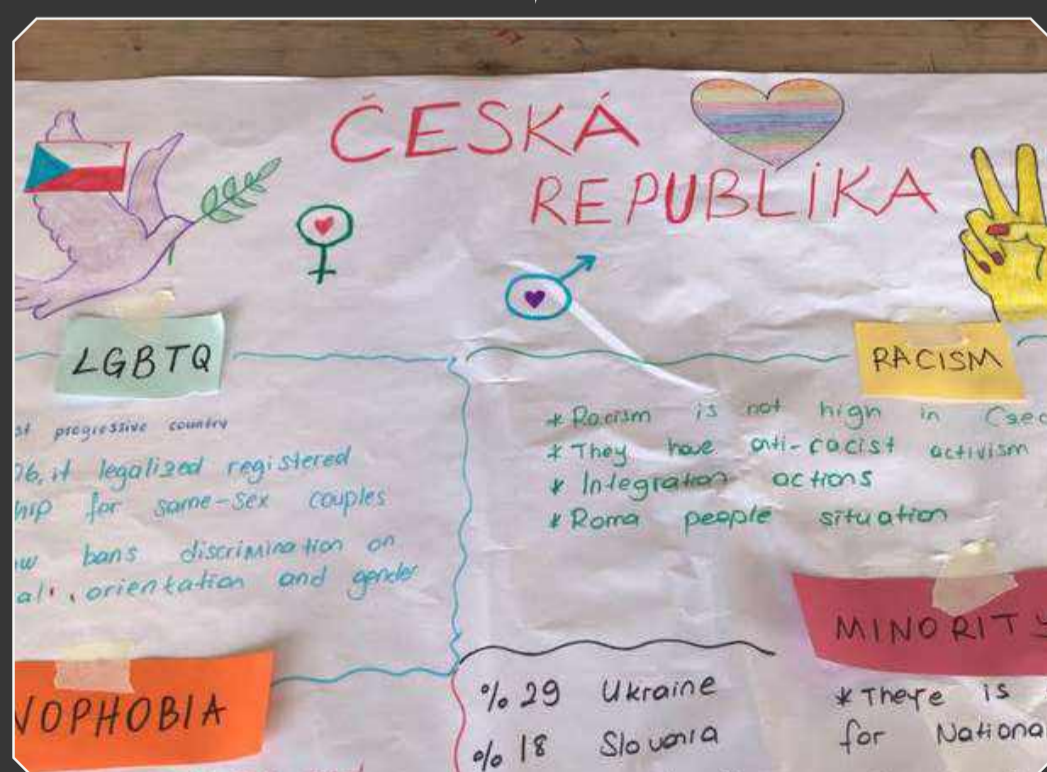 ČESKÁ
REPUBLİKA
LGBTQ
st progressive country
06, it legalized registered
hip for same-sex couples
w bans discrimination on
orientation and gender
RACISM
* Racism is not high in Czec
* They have anti-racist activism
* Integration actions
* Roma people situation
NOPHOBIA
% 29 Ukraine
% 18 Slovania
MINORITY
* There is
for Nationa